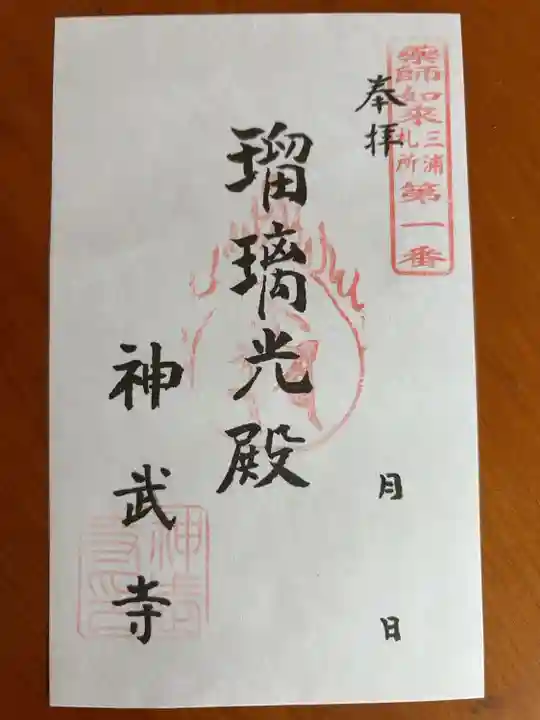 薬師如来三浦札所第一番
奉拝
月
日
瑠璃光殿
神武寺